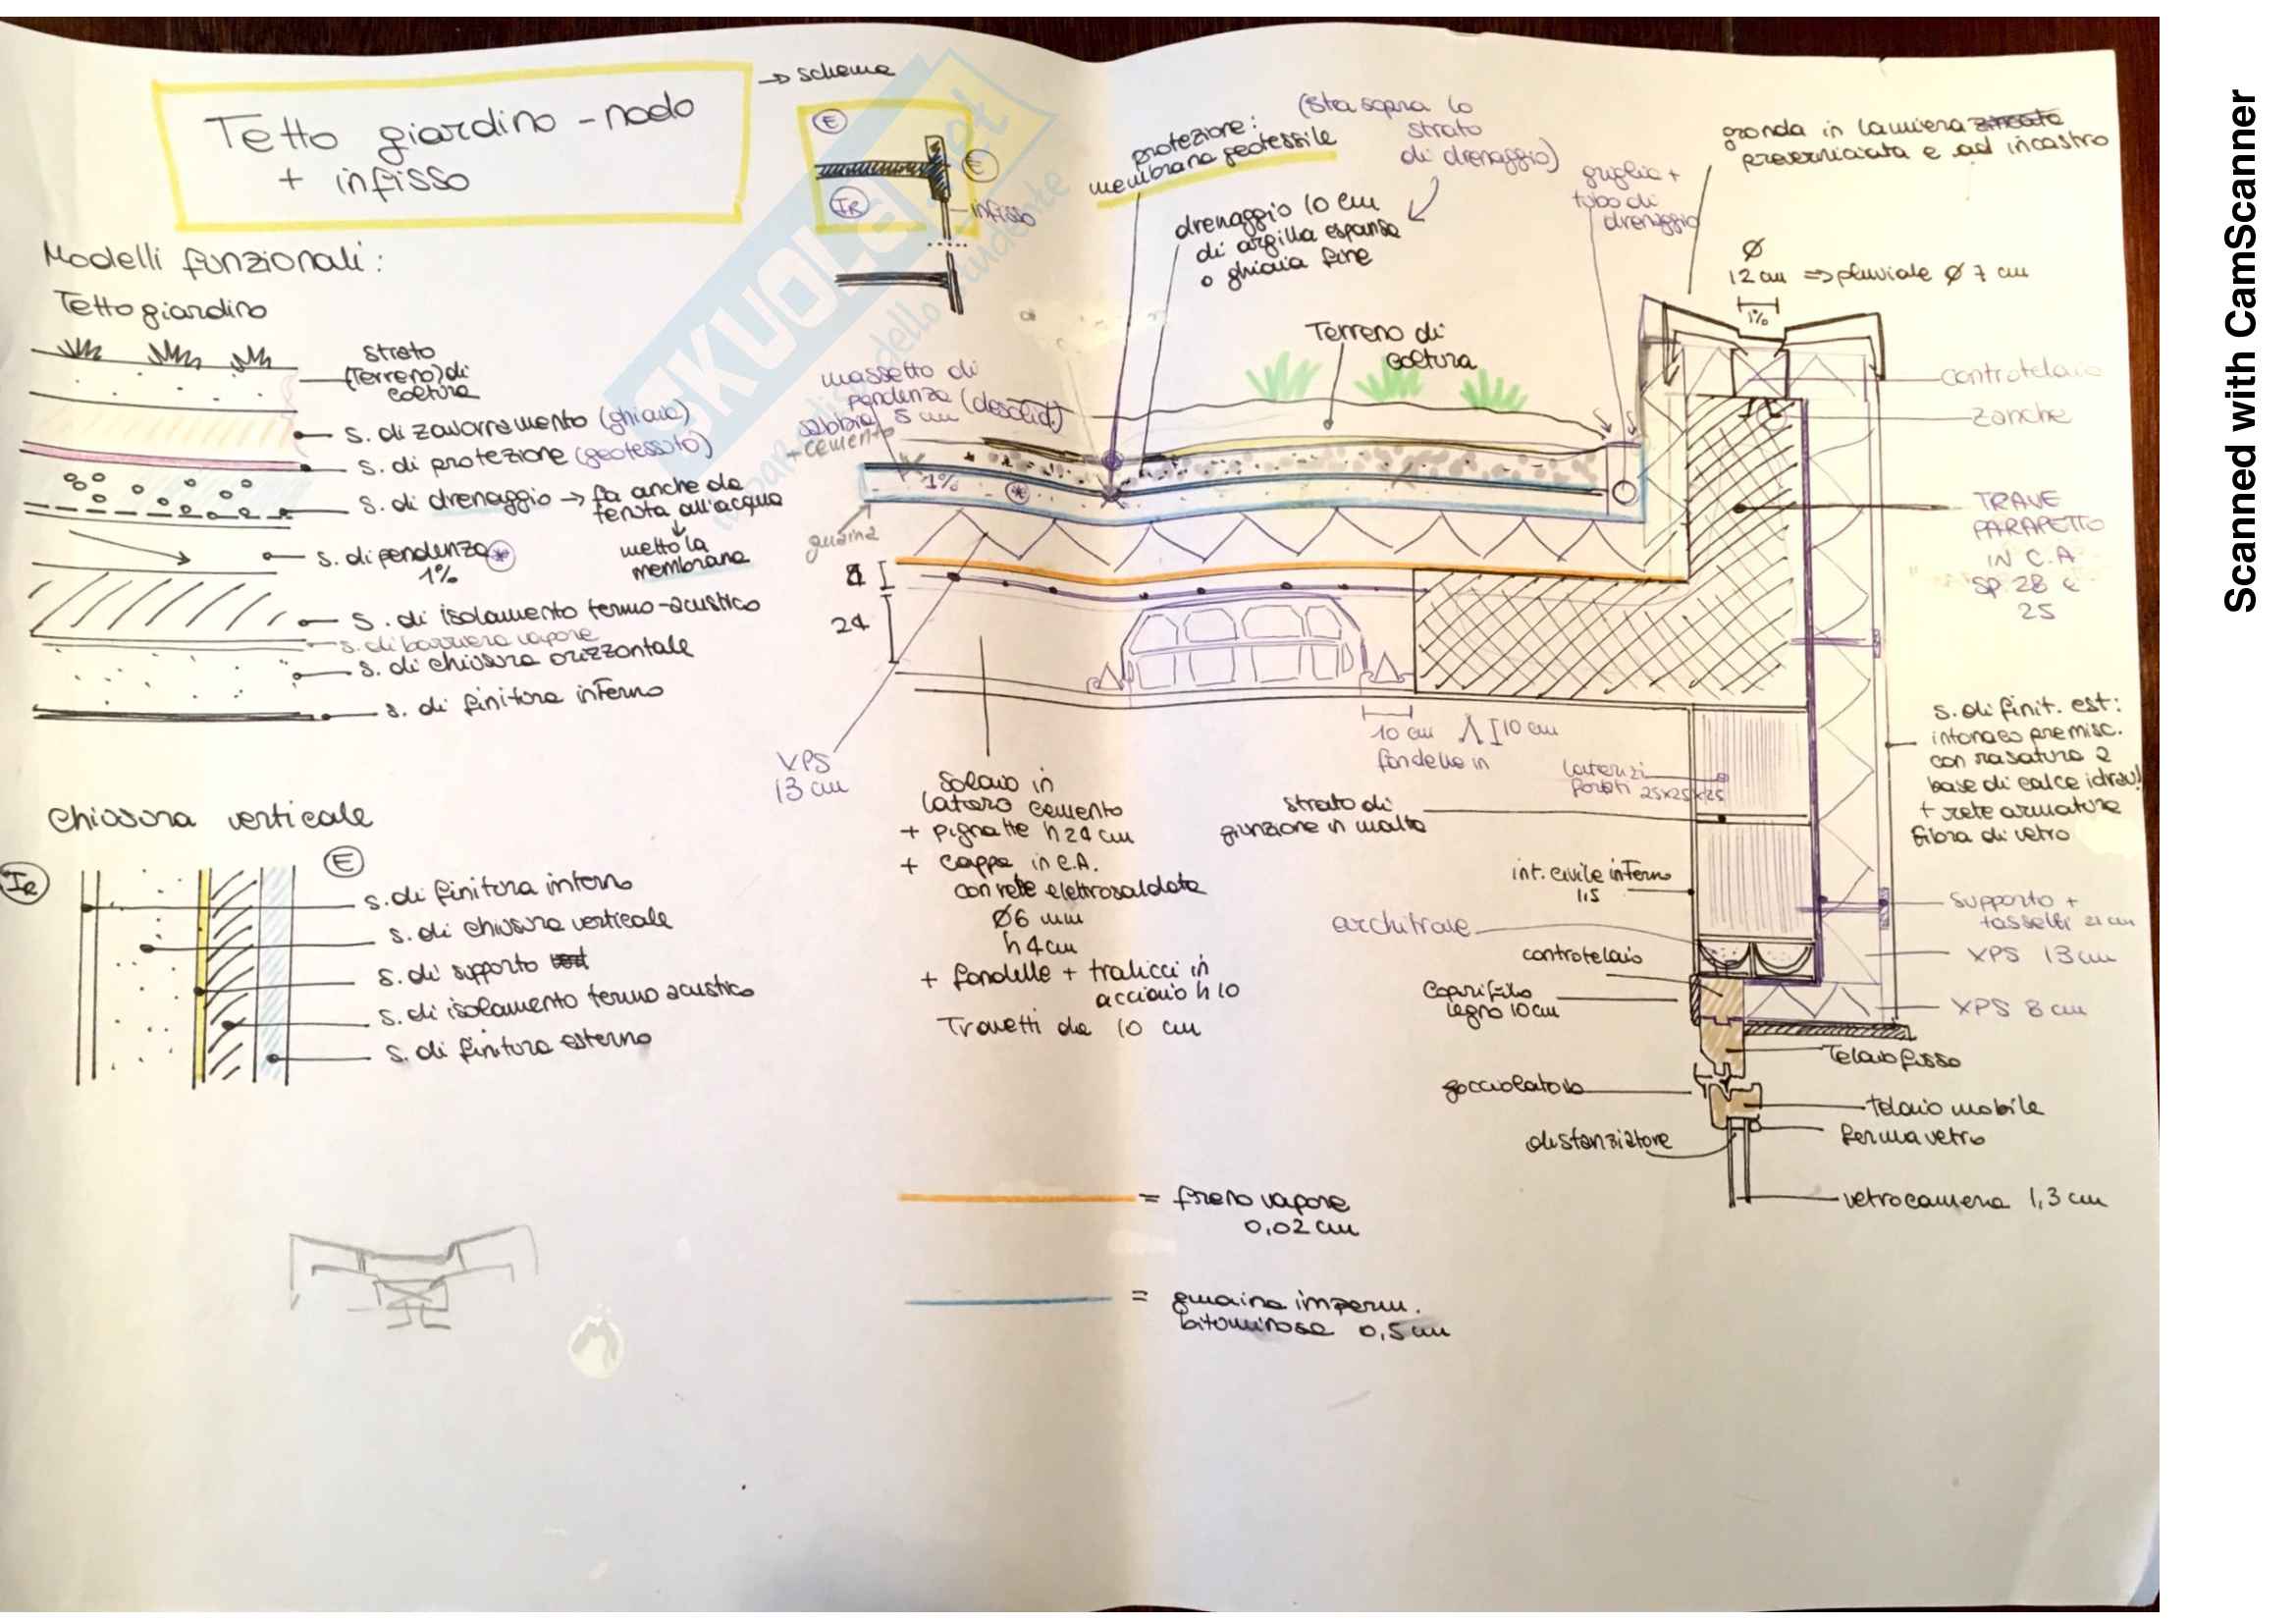 Tetto giardino - nodo
+ infisso
→ schema
E
E
IR
infisso
Modelli funzionali:
Tetto giardino
strato
(Terreno) di
coltura
s. di zavorramento (ghiaia)
s. di protezione (geotessuto)
s. di drenaggio → fa anche da
tenuta all'acqua
↓
metto la
membrana
s. di pendenza *
1%
s. di isolamento termo-acustico
s. di barriera vapore
s. di chiusura orizzontale
s. di finitura interno
chiusura verticale
IR
E
s. di finitura interno
s. di chiusura verticale
s. di supporto
s. di isolamento termo acustico
s. di finitura esterno
protezione:
membrana geotessile
(sta sopra lo
strato
di drenaggio)
drenaggio 10 cm
di argilla espansa
o ghiaia fine
griglia +
tubo di
drenaggio
gronda in lamiera zincata
preverniciata e ad incastro
Ø
12 cm ⇒ pluviale Ø 7 cm
1%
Terreno di
coltura
massetto di
pendenza (desolid.)
sabbia 5 cm
+ cemento
1%
*
guaina
controtelaio
zanche
TRAVE
PARAPETTO
IN C.A
SP. 28 e
25
4
24
XPS
13 cm
10 cm
10 cm
fondelle in
laterizi
forati 25x25x25
solaio in
latero cemento
+ pignatte h 24 cm
+ cappa in C.A.
con rete elettrosaldata
Ø6 mm
h 4 cm
+ fondelle + tralicci in
acciaio h 10
Travetti da 10 cm
strato di
giunzione in malta
int. civile interno
1,5
architrave
controtelaio
coprifilo
legno 10 cm
gocciolatoio
distanziatore
s. di finit. est:
intonaco premisc.
con rasatura a
base di calce idrau!
+ rete armatura
fibra di vetro
supporto +
tasselli 21 cm
XPS 13 cm
XPS 8 cm
Telaio fisso
telaio mobile
ferma vetro
vetrocamera 1,3 cm
= freno vapore
0,02 cm
= guaina imperm.
bituminosa 0,5 cm
SKUOLA.net
Scanned with CamScanner